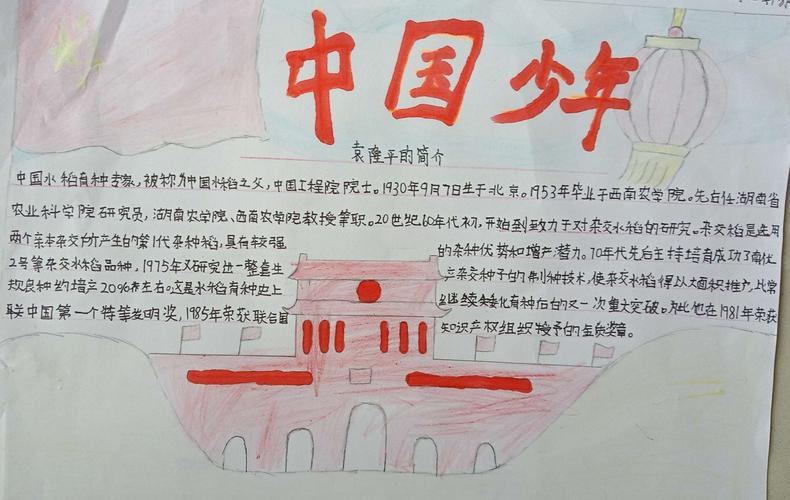 中国少年
袁隆平的简介
中国水稻育种专家,被称为中国水稻之父,中国工程院院士。1930年9月7日生于北京。1953年毕业于西南农学院。先后任湖南省
农业科学院研究员,湖南农学院、西南农学院教授兼职。20世纪60年代初,开始到致力于对杂交水稻的研究。杂交稻是选用
两个亲本杂交所产生的第1代杂种稻,具有较强 的杂种优势和增产潜力。70年代先后主持培育成功了南优
2号等杂交水稻品种,1975年又研究出一整套生 产杂交种子的制种技术,使杂交水稻得以大面积推广,比常
规良种约增产20%左右。这是水稻育种史上 继续矮化育种后的又一次重大突破。为此他在1981年荣获
联中国第一个特等发明奖,1985年荣获联合国 知识产权组织授予的金质奖章。